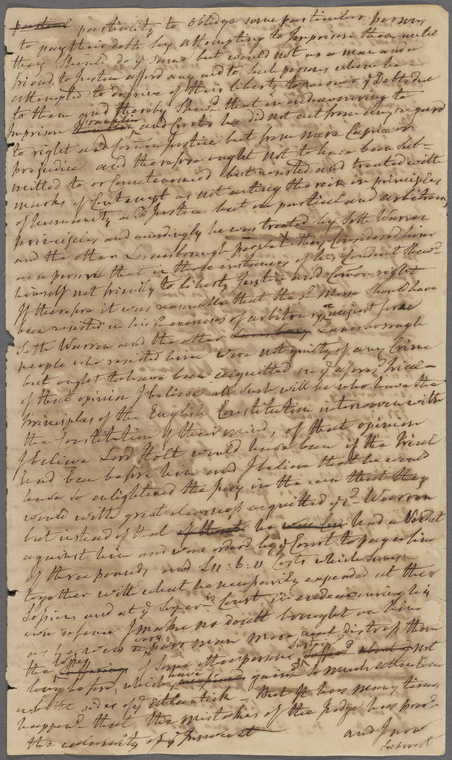 partiality to oblige some particular persons
to pay their debts by attempting to imprison them until
they should do it some but would not as a man and a
friend to Justice afford any aid to such persons where he
attempted to deprive of their liberty to answer debts due
to them and thereby shewd that in endeavouring to
imprison and Curtis he did not act from any regard
to right and from Justice but from mere Caprice or
prejudice and therefore ought not to have been sub-
mitted to or Countenanced but resisted and treated with
marks of Contempt as not acting therein on principles
of humanity and Justice but on partial and arbitrary
principles and accordingly he was treated by Seth Warren
and the other Lanesborough people they Considered him
as a person that in those instances of his Conduct shewd
himself not friendly to liberty Justice and Common right
If therefore it was reasonable that the sd. should have
been resisted in his exercises of arbitrary unjust force
Seth Warren and the other Lanesborough
people who resisted him were not guilty of any Crime
but ought to have been acquitted on ye. Trial
of that opinion I believe all such will be who have the
Principles of the English Constitution interwoven with
the Constitution of their minds, of that opinion
I believe Lord Holt would have been if the Trial
had been before him and I believe that he would
have so enlightened the Jury in the case that they
would with great have acquitted sd. Warren
but instead of that he had a Verdict
against him and was orderd by ye. Court to pay a fine
of three pounds and £11:6:11 Costs which Sums
together with what he necessarily expended at the
Inferior and at ye. Superr. Court in endeavouring his
own defence I make no doubt brought on him
as a very poor man more real distress than
the of some other persons not
long before, which have gained so much attention
on this side of ye. atlantick But it has many times
happend that the mistakes of the Judge have provd
the calamity of ye. Innocent and I now